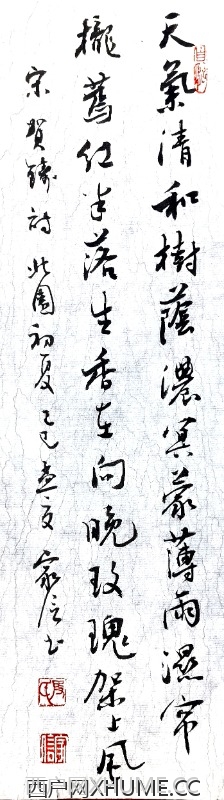 天氣清和樹蔭濃冥蒙薄雨濕帘
櫳蔫红半落生香在向晚玫瑰架上風
宋賀鑄詩北園初夏乙巳孟夏家信书
西户网XHUME.CC